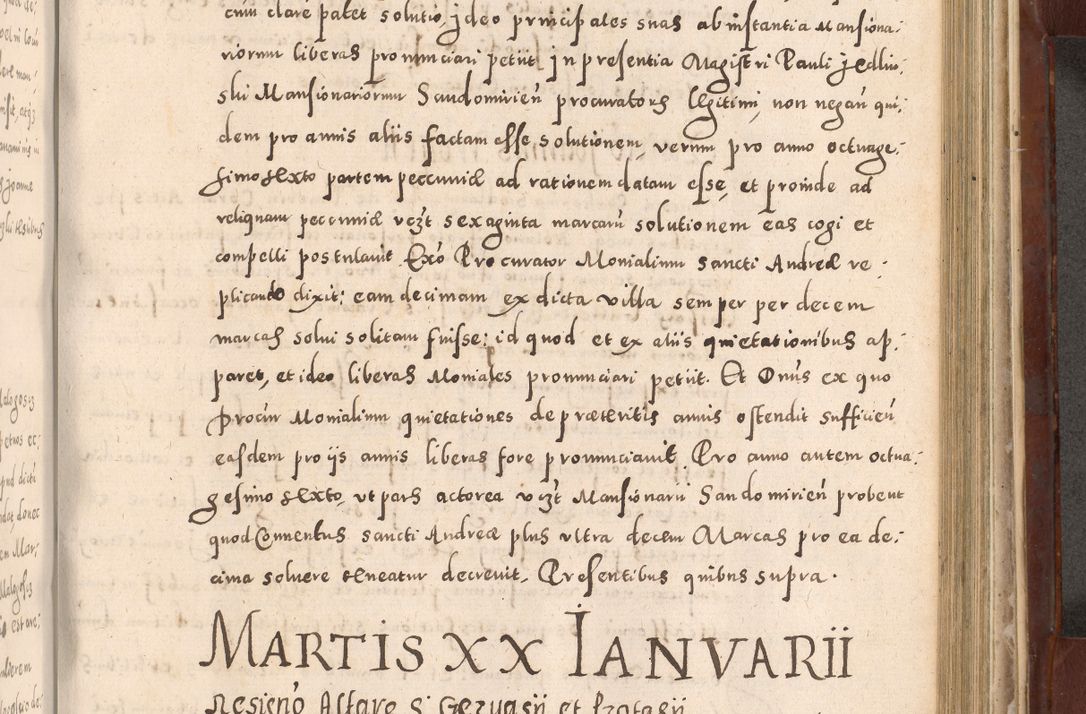 cum clare patet solutio, ideo principales suas ab instantia Mansiona:
riorum liberas pronunciari petiit in presentia Magistri Pauli Jedlin:
ski Mansionariorum Sandomirien̄ procuratoris legitimi, non negan̄ qui:
dem pro annis aliis factam esse solutionem, verum pro anno octuage:
simo sexto partem peccuniæ ad rationem datam esse, et proinde ad
reliquam peccuniæ vczt sexaginta marcarū solutionem eas cogi et
compelli postulavit. Exō Procurator Monialium sancti Andreæ re:
plicando dixit: eam decimam ex dicta villa semper per decem
marcas solui solitam fuisse: id quod et ex aliis quietationibus ap:
paret, et ideo liberas Moniales pronunciari petiit. Et Dnūs ex quo
Procūr Monialium quietationes de præteritis annis ostendit sufficien̄
easdem pro iis annis liberas fore pronunciavit. Pro anno autem octua:
gesimo sexto, vt pars actorea vczt Mansionarii Sandomirien̄ probent
quod Conventus sancti Andreæ plus vltra decem Marcas pro ea de:
cima soluere teneatur decrevit. Presentibus quibus supra.
MARTIS XX IANVARII
Resigno Altare S. Gervasii et Protasii